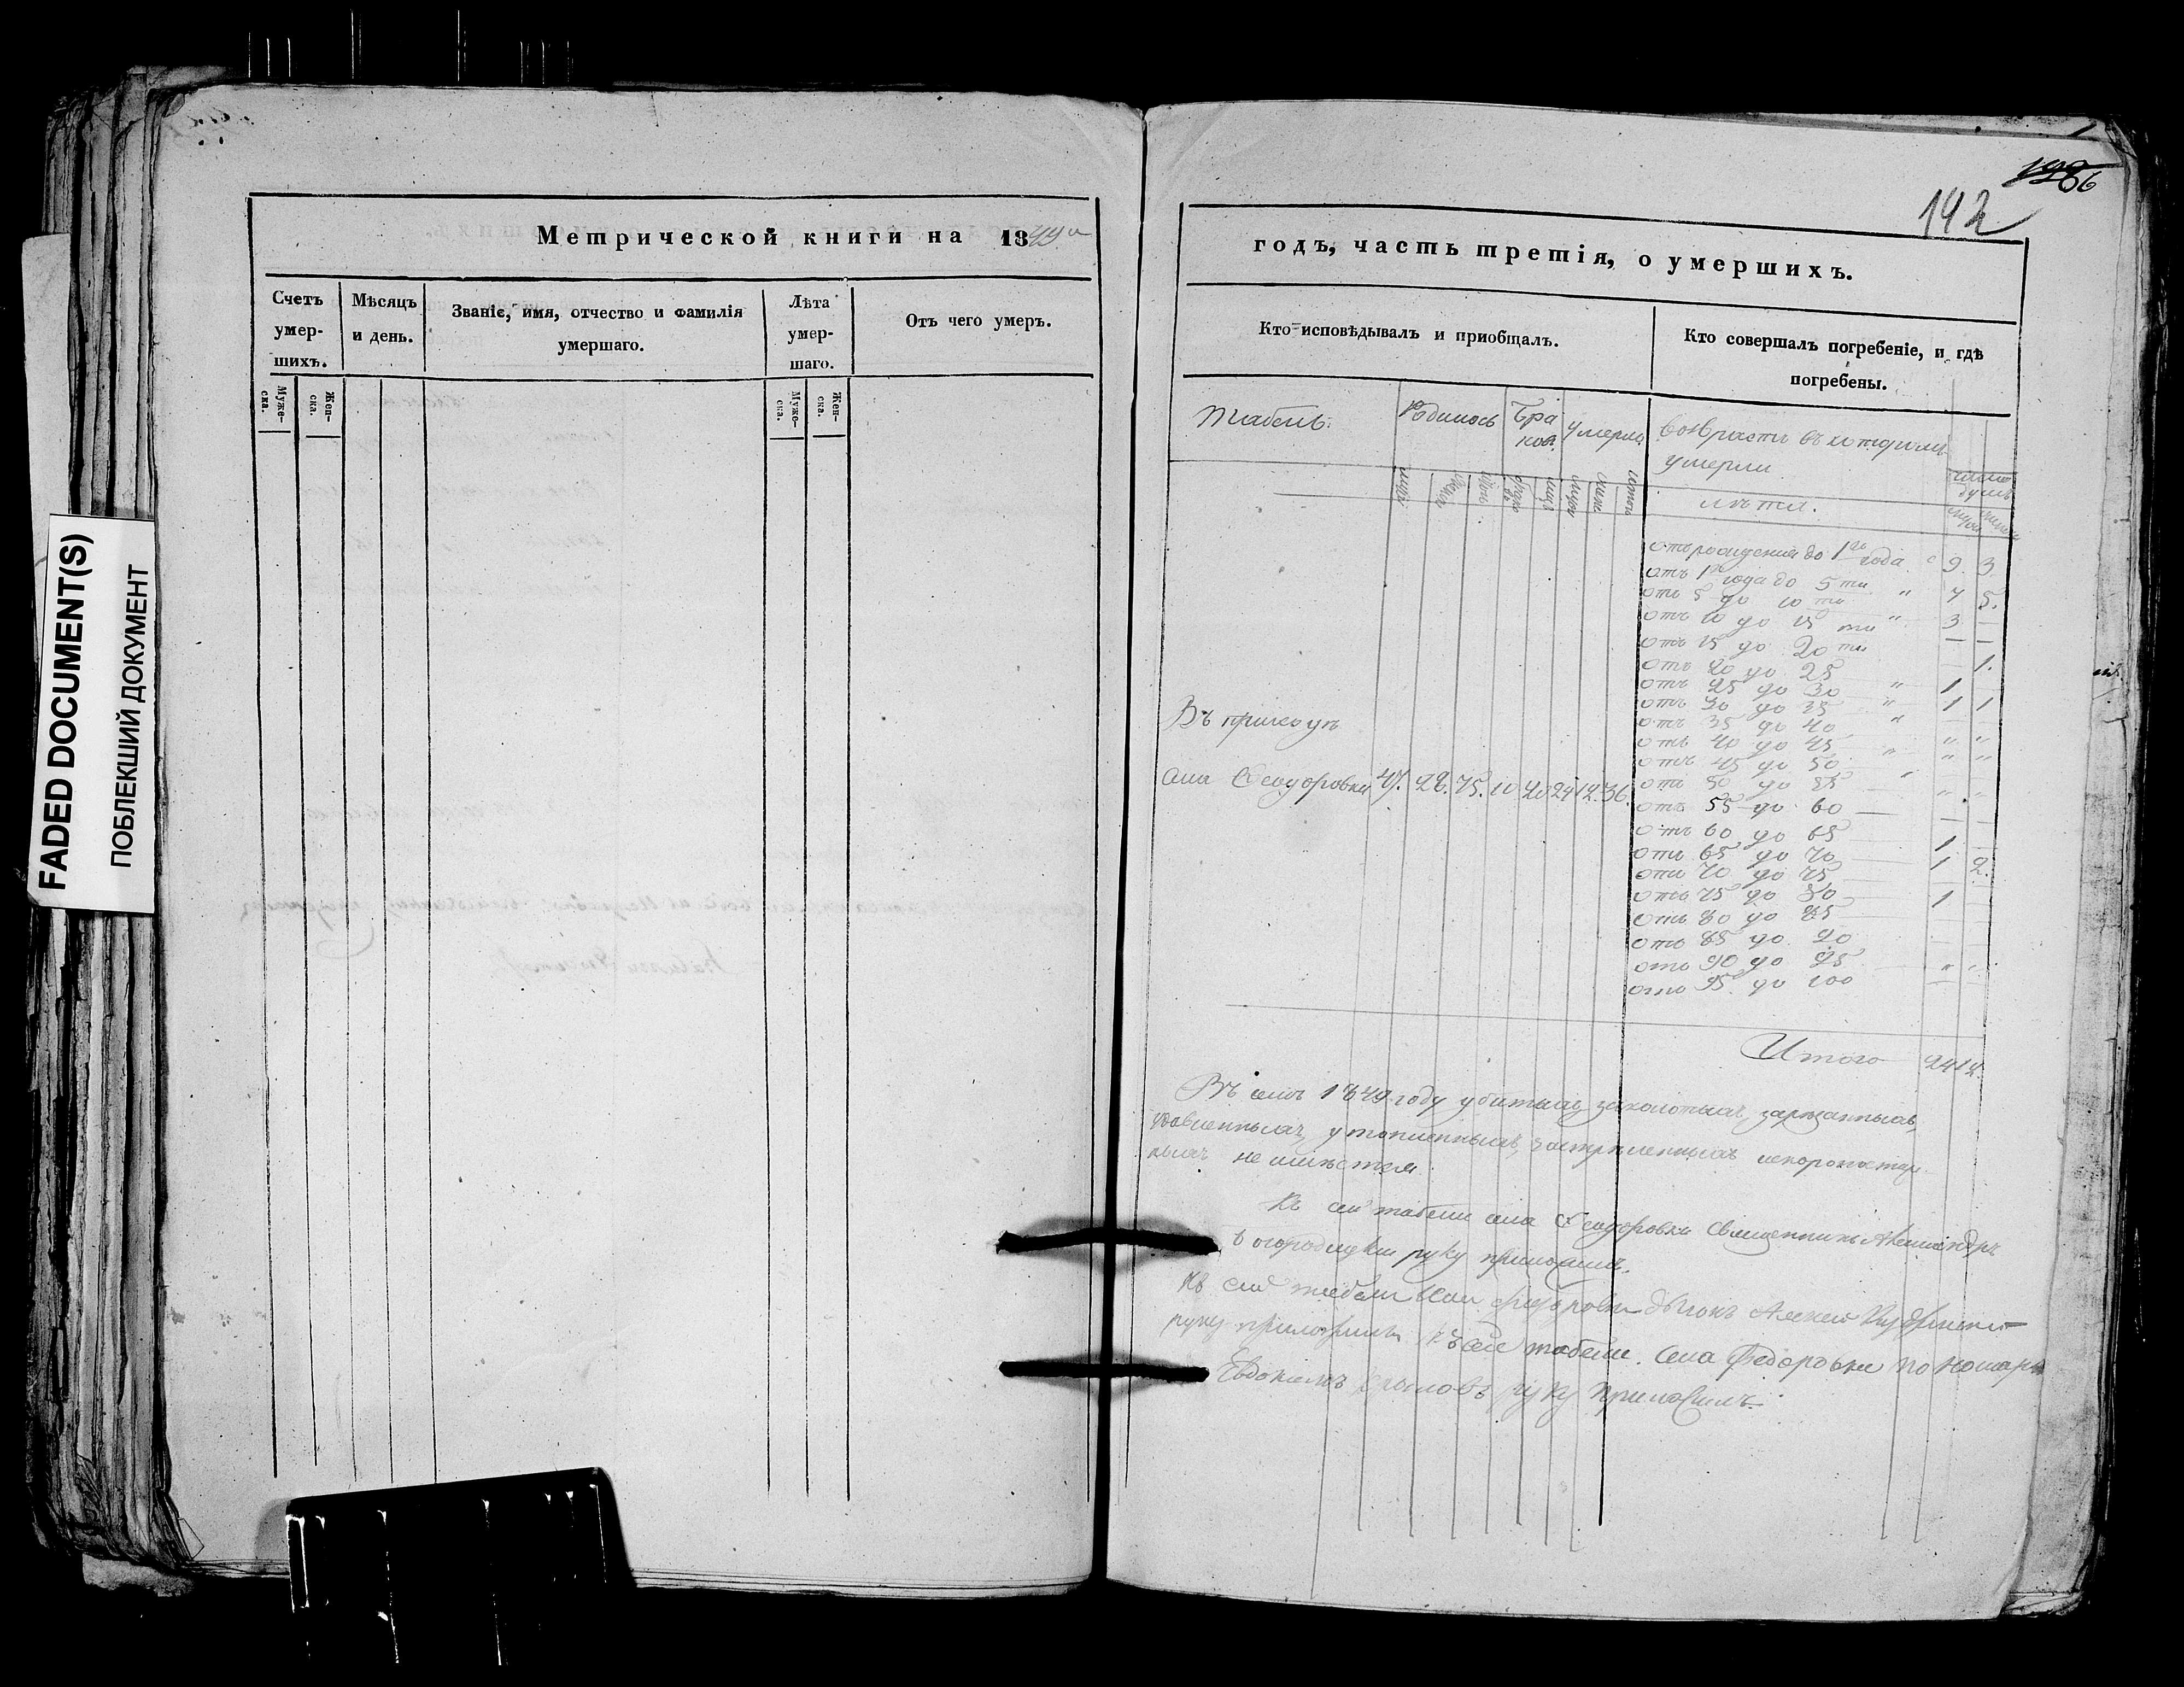 FADED DOCUMENT(S)
ПОБЛЕКШИЙ ДОКУМЕНТ
Метрической книги на 1849
Счетъ умер-шихъ.
Мѣсяцъ и день.
Званіе, имя, отчество и фамилія умершаго.
Лѣта умер-шаго.
Отъ чего умеръ.
Муже-ска.
Жен-ска.
Муже-ска.
Жен-ска.
142
годъ, часть третія, о умершихъ.
Кто исповѣдывалъ и пріобщалъ.
Кто совершалъ погребеніе, и гдѣ погребены.
Табель.
Родилось
Браковъ
Умерло
возрасты въ которыхъ умерли
лѣта.
отъ рожденія до 1го года 9 3
отъ 1го года до 5ти " 7 5.
отъ 5 до 10ти " 3 —
отъ 10 до 15ти — —
отъ 15 до 20ти — 1.
отъ 20 до 25 " 1
отъ 25 до 30 " 1 1
отъ 30 до 35 "
отъ 35 до 40 " "
отъ 40 до 45 " " "
отъ 45 до 50
отъ 50 до 55 " "
отъ 55 до 60 — —
отъ 60 до 65 1
отъ 65 до 70 1 2.
отъ 70 до 75 —
отъ 75 до 80 1
отъ 80 до 85
отъ 85 до 90
отъ 90 до 95 " "
отъ 95 до 100 — —
Въ приходѣ
села Ѳеодоровки 47. 28. 75. 10 20 24 12. 36.
Итого 24 12.
Въ семъ 1849 году убитыхъ, заколотыхъ, зарѣзанныхъ,
удавленныхъ, утопленныхъ, застрѣленныхъ
не имѣется.
Къ сей табели села Ѳеодоровки Священникъ Александръ
Богородицкій руку приложилъ.
Къ сей табели села Ѳедоровки дьяконъ Алексей
руку приложилъ Къ сей табели. села Федоровки пономарь
Евдокимъ Крыловъ руку приложилъ.